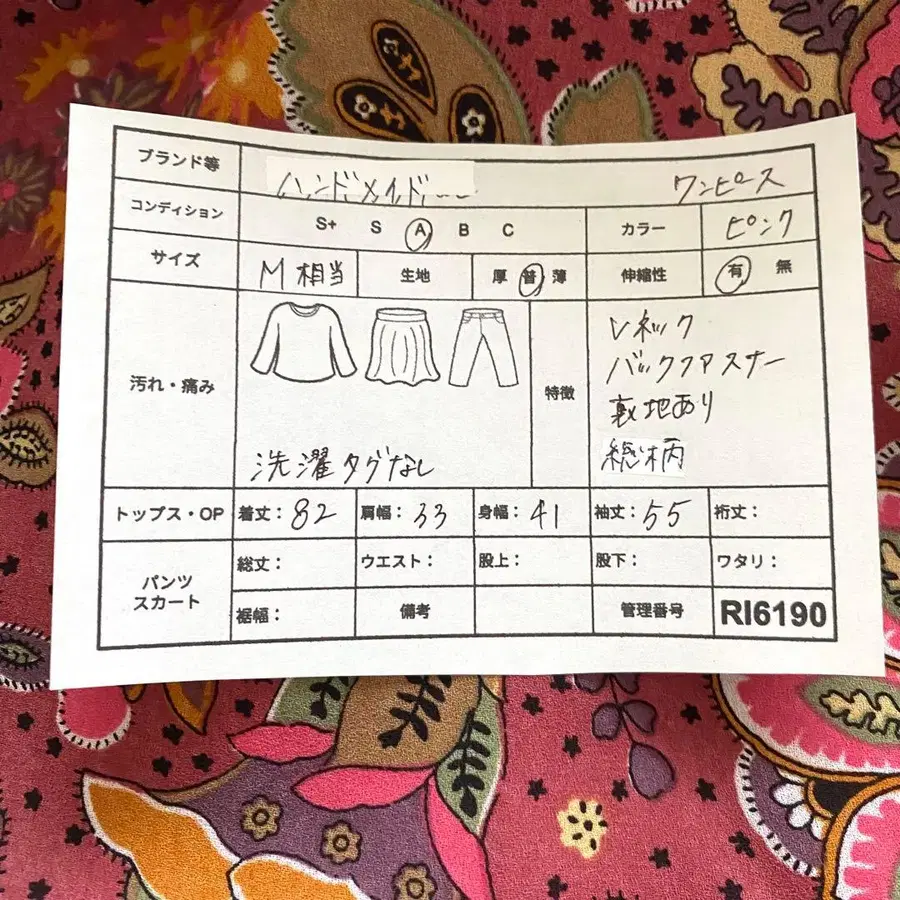 ブランド等 ハンドメイド ワンピース
コンディション S+ S A B C カラー ピンク
サイズ M相当 生地 厚 普 薄 伸縮性 有 無
汚れ・痛み 洗濯タグなし
特徴 Vネック
バックファスナー
裏地あり
総柄
トップス・OP 着丈:82 肩幅:33 身幅:41 袖丈:55 裄丈:
パンツ スカート
総丈: ウエスト: 股上: 股下: ワタリ:
裾幅: 備考 管理番号 RI6190